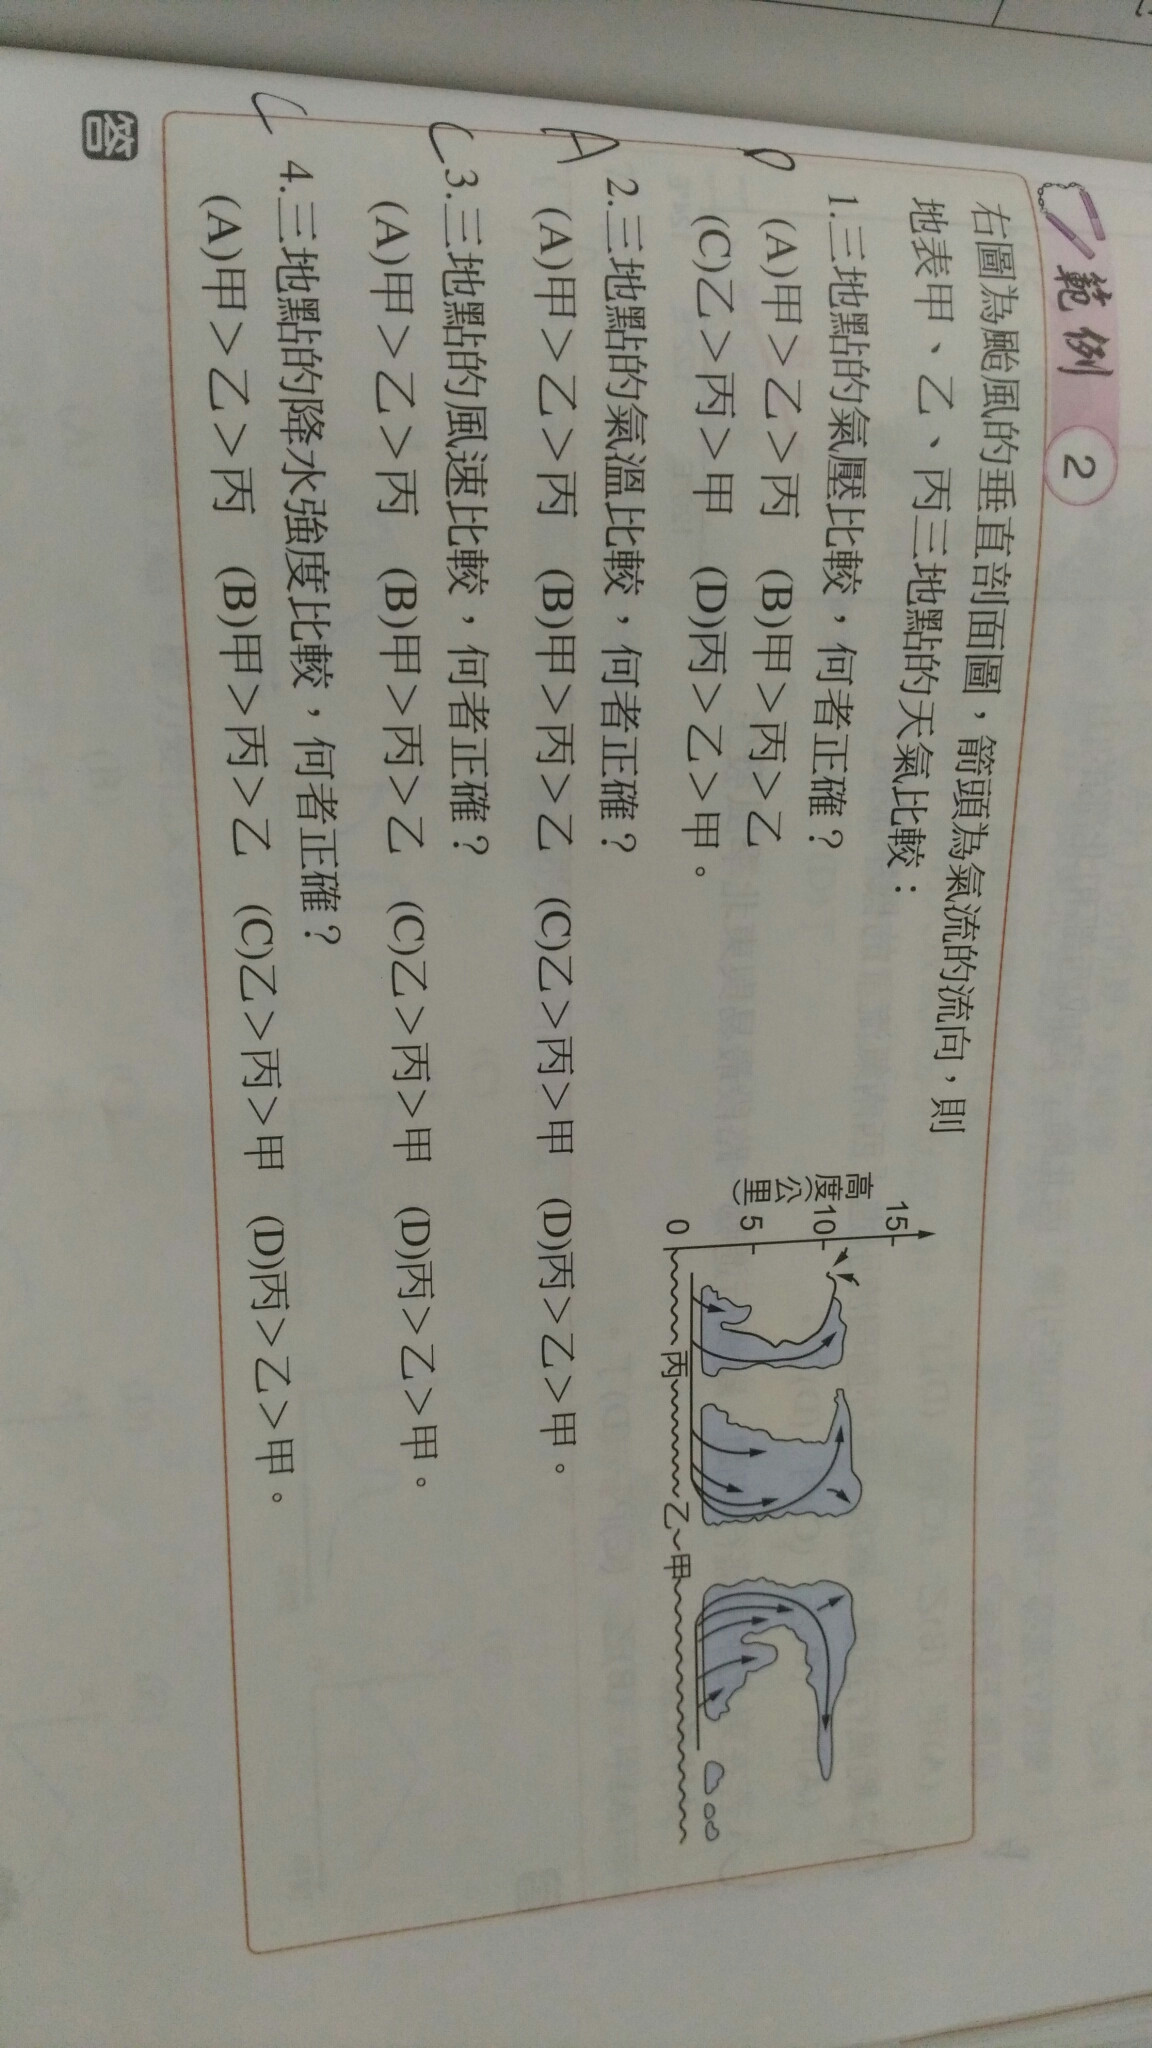 範例 2
右圖為颱風的垂直剖面圖，箭頭為氣流的流向，則
地表甲、乙、丙三地點的天氣比較：
D 1.三地點的氣壓比較，何者正確？
(A)甲＞乙＞丙 (B)甲＞丙＞乙
(C)乙＞丙＞甲 (D)丙＞乙＞甲。
A 2.三地點的氣溫比較，何者正確？
(A)甲＞乙＞丙 (B)甲＞丙＞乙 (C)乙＞丙＞甲 (D)丙＞乙＞甲。
C 3.三地點的風速比較，何者正確？
(A)甲＞乙＞丙 (B)甲＞丙＞乙 (C)乙＞丙＞甲 (D)丙＞乙＞甲。
C 4.三地點的降水強度比較，何者正確？
(A)甲＞乙＞丙 (B)甲＞丙＞乙 (C)乙＞丙＞甲 (D)丙＞乙＞甲。
高度(公里)
15
10
5
0
丙 乙 甲
答